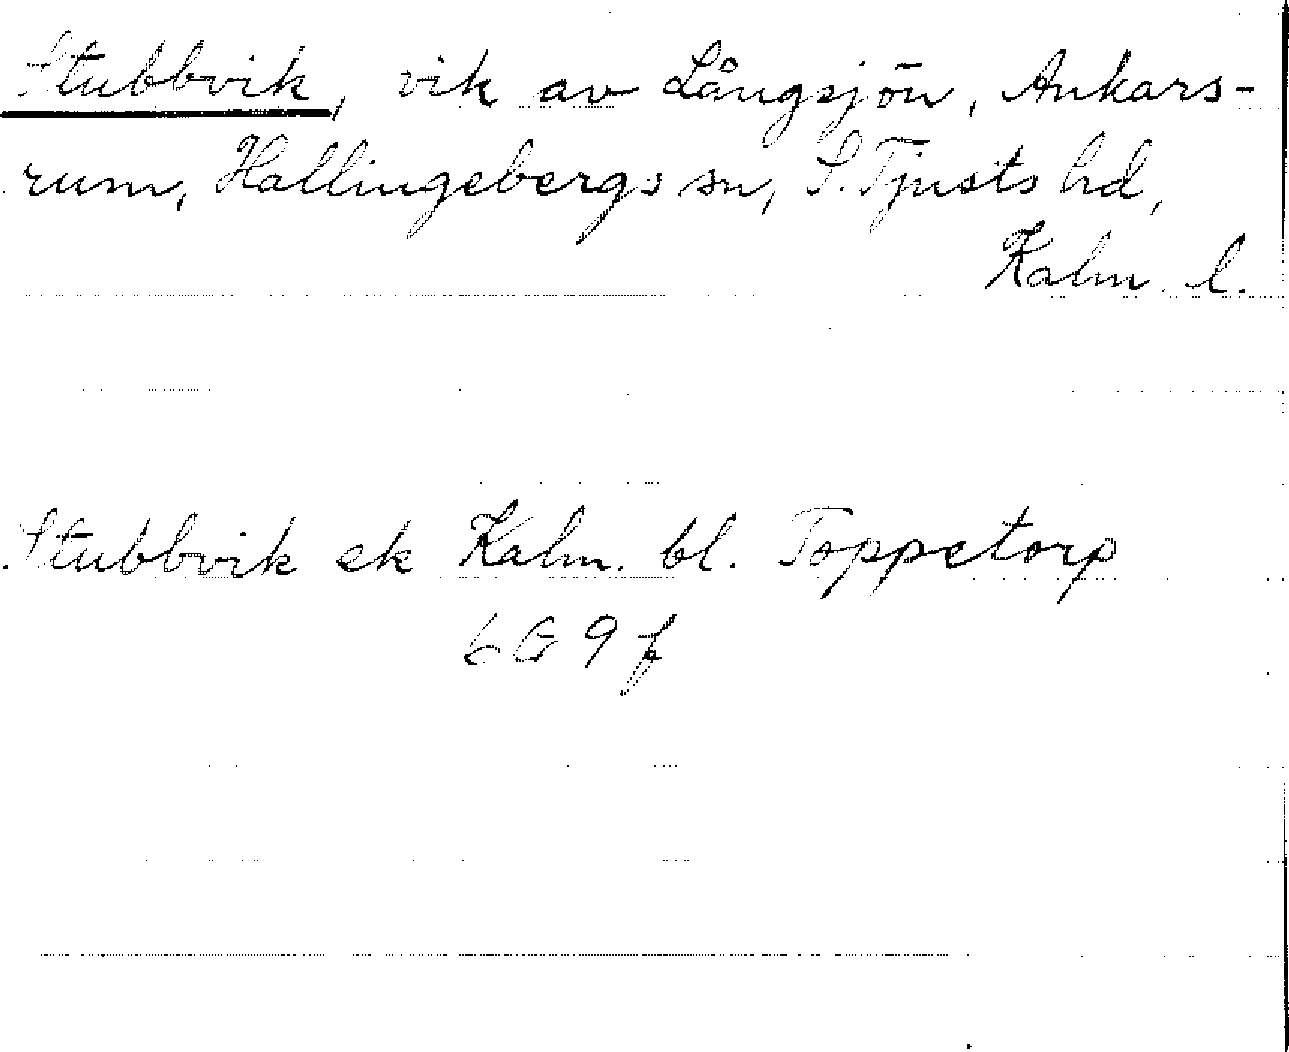 Stubbvik, vik av Långsjön, Ankars-
rum, Hallingebergs sn, S. Tjusts hd,
Kalm. l.
Stubbvik ek Kalm. bl. Toppetorp
6G9f